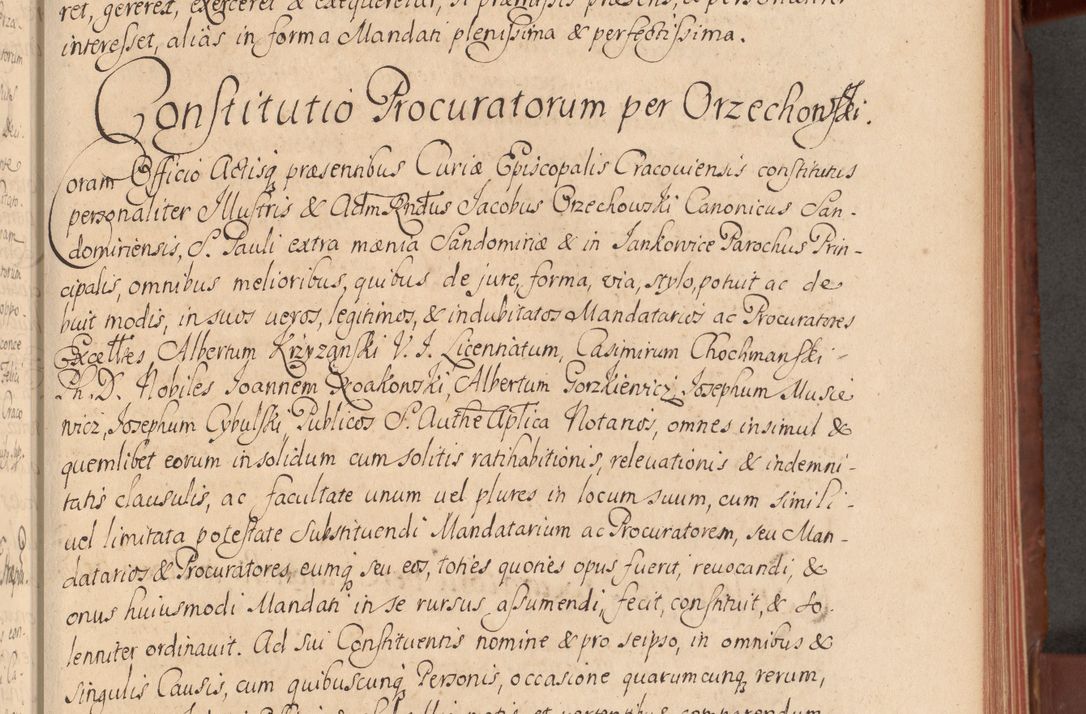 ret, gereret, exerceret & exequeretur, si præmissis præsens, & personaliter
interesset, aliàs in forma Mandati plenissima & perfectissima.
Constitutio Procuratorum per Orzechowski.
Coram Officio Actisq præsentibus Curiæ Episcopalis Cracoviensis constitutus
personaliter Illustris & Adm Rndus Jacobus Orzechowski Canonicus San-
domiriensis, S. Pauli extra mænia Sandomiriæ & in Jankowice Parochus Prin-
cipalis, omnibus melioribus, quibus de jure, forma, via, stylo, potuit ac de
buit modis, in suos veros, legitimos, & indubitatos Mandatarios ac Procuratores
Excellttes Albertum Krzyzanski V. J. Licentiatum, Casimirum Chochmanski -
Ph. D. Nobiles Joannem Kroakowski, Albertum Gorzkiewicz, Josephum Musie
wicz, Josephum Cybulski Publicos S. Authe Aplica Notarios, omnes insimul &
quemlibet eorum in solidum cum solitis ratihabitionis, relevationis & indemni-
tatis clausulis, ac facultate unum vel plures in locum suum, cum simili -
vel limitata potestate substituendi Mandatarium ac Procuratorem, seu Man-
datarios & Procuratores, eumq seu eos, toties quoties opus fuerit, revocandi, &
onus huiusmodi Mandati in se rursus assumendi, fecit, constituit, & so-
lenniter ordinavit. Ad sui Constituentis nomine & pro seipso, in omnibus &
singulis Causis, cum quibuscunq Personis, occasione quarumcunq rerum,